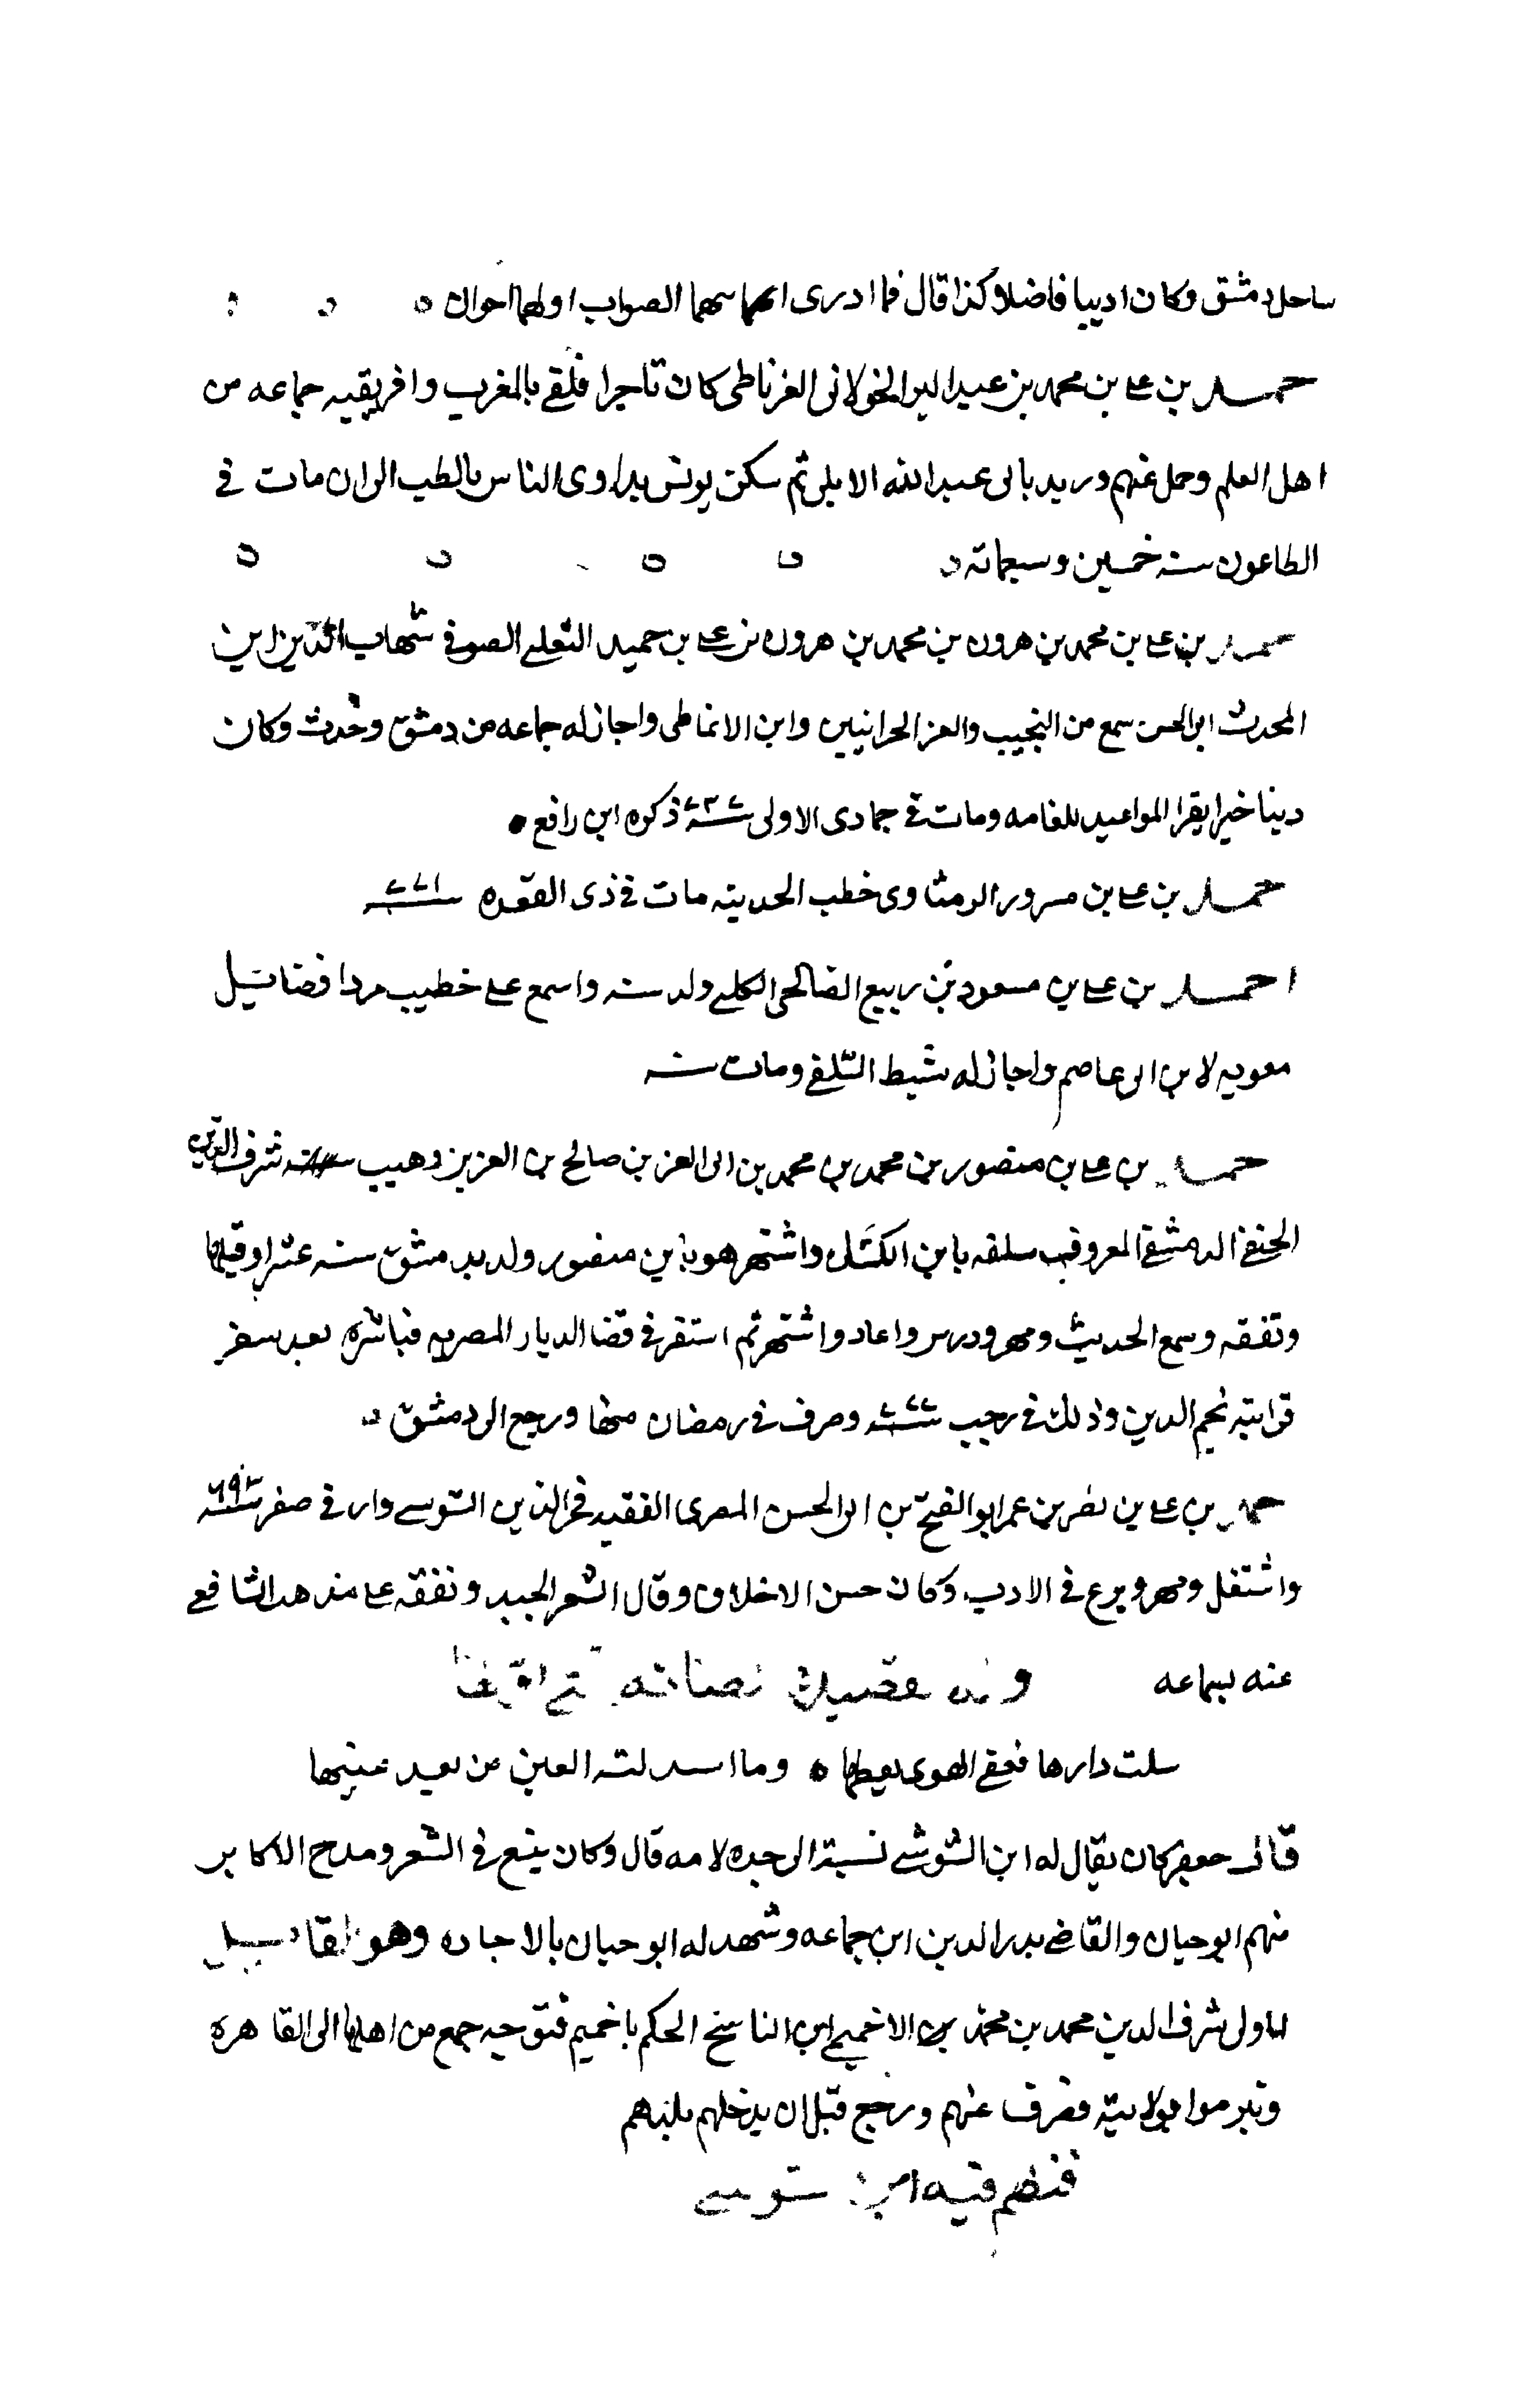 ساحل دمشق وكان اديبا فاضلا وكذا قال فما ادرى ايهما سهما الصواب او لهما اخوان
حمد بن على بن محمد بن عبد البر الخولانى الغرناطى كان تاجرا فلقى بالمغرب وافريقيه جماعه من
اهل العلم وحمل عنهم وريد بابى عبد الله الابلى ثم سكن تونس يداوى الناس بالطب الى ان مات فى
الطاعون سنه خمسين وسبعمائه
حمد بن على بن محمد بن هرون بن محمد بن هرون بن على بن حميد الثعلبى الصوفى شهاب الدين ابن
المحدث ابى الحسن سمع من النجيب والعز الحرانيين وابن الانماطى واجاز له جماعه من دمشق وحدث وكان
دينا خيرا يقرا المواعيد للعامه ومات فى جمادى الاولى سنة ذكره ابن رافع
حمد بن على بن مسرور الرمثاوى خطب الحديثه مات فى ذى القعده سنة ٧٧١
احمد بن على بن مسعود بن ربيع الصالحى الكلبى ولد سنه واسمع على خطيب مردا فضائل
معويه لابن ابى عاصم واجاز له سبط السلفى ومات سنه
حمد بن على بن منصور بن محمد بن محمد بن ابى العز بن صالح بن العزيز وهيب شرف الدين
الحنفى الدمشقى المعروف سلفه بابن الكشك واشتهر هو بابن منصور ولد بدمشق سنه عشر او قبلها
وتفقه وسمع الحديث ومهر ودرس واعاد واشتهر ثم استقر فى قضا الديار المصريه فباشره بعد سفر
قرابته نجم الدين وذلك فى رجب سنة ٧٧٧ وصرف فى رمضان منها ورجع الى دمشق
حمد بن على بن نصر بن عمر ابو الفتح بن ابى الحسن المصرى الفقيه فخر الدين السوسى ولد فى صفر سنة ٦٩٢
واشتغل ومهر وبرع فى الادب وكان حسن الاخلاق وقال الشعر الجيد وتفقه على مذهب الشافعى
عنه بسماعه
سلت دارها فعقى الهوى بعطها وما اسدلته العين من بعد عينها
قال جعفر كان يقال له ابن السوسى نسبة الى جده لامه قال وكان ينبع فى الشعر ومدح الاكابر
منهم ابو حيان والقاضى بدر الدين ابن جماعه وشهد له ابو حيان بالاجاده وهو القايل
لما ولى شرف الدين محمد بن محمد بن الاخميمى ابن الناسخ الحكم باخميم فتوجه جمع من اهلها الى القاهره
وتبرموا بولايته فصرف عنهم ورجع قبل ان يدخلهم بلدهم
فنظم فيه ابن سوسى